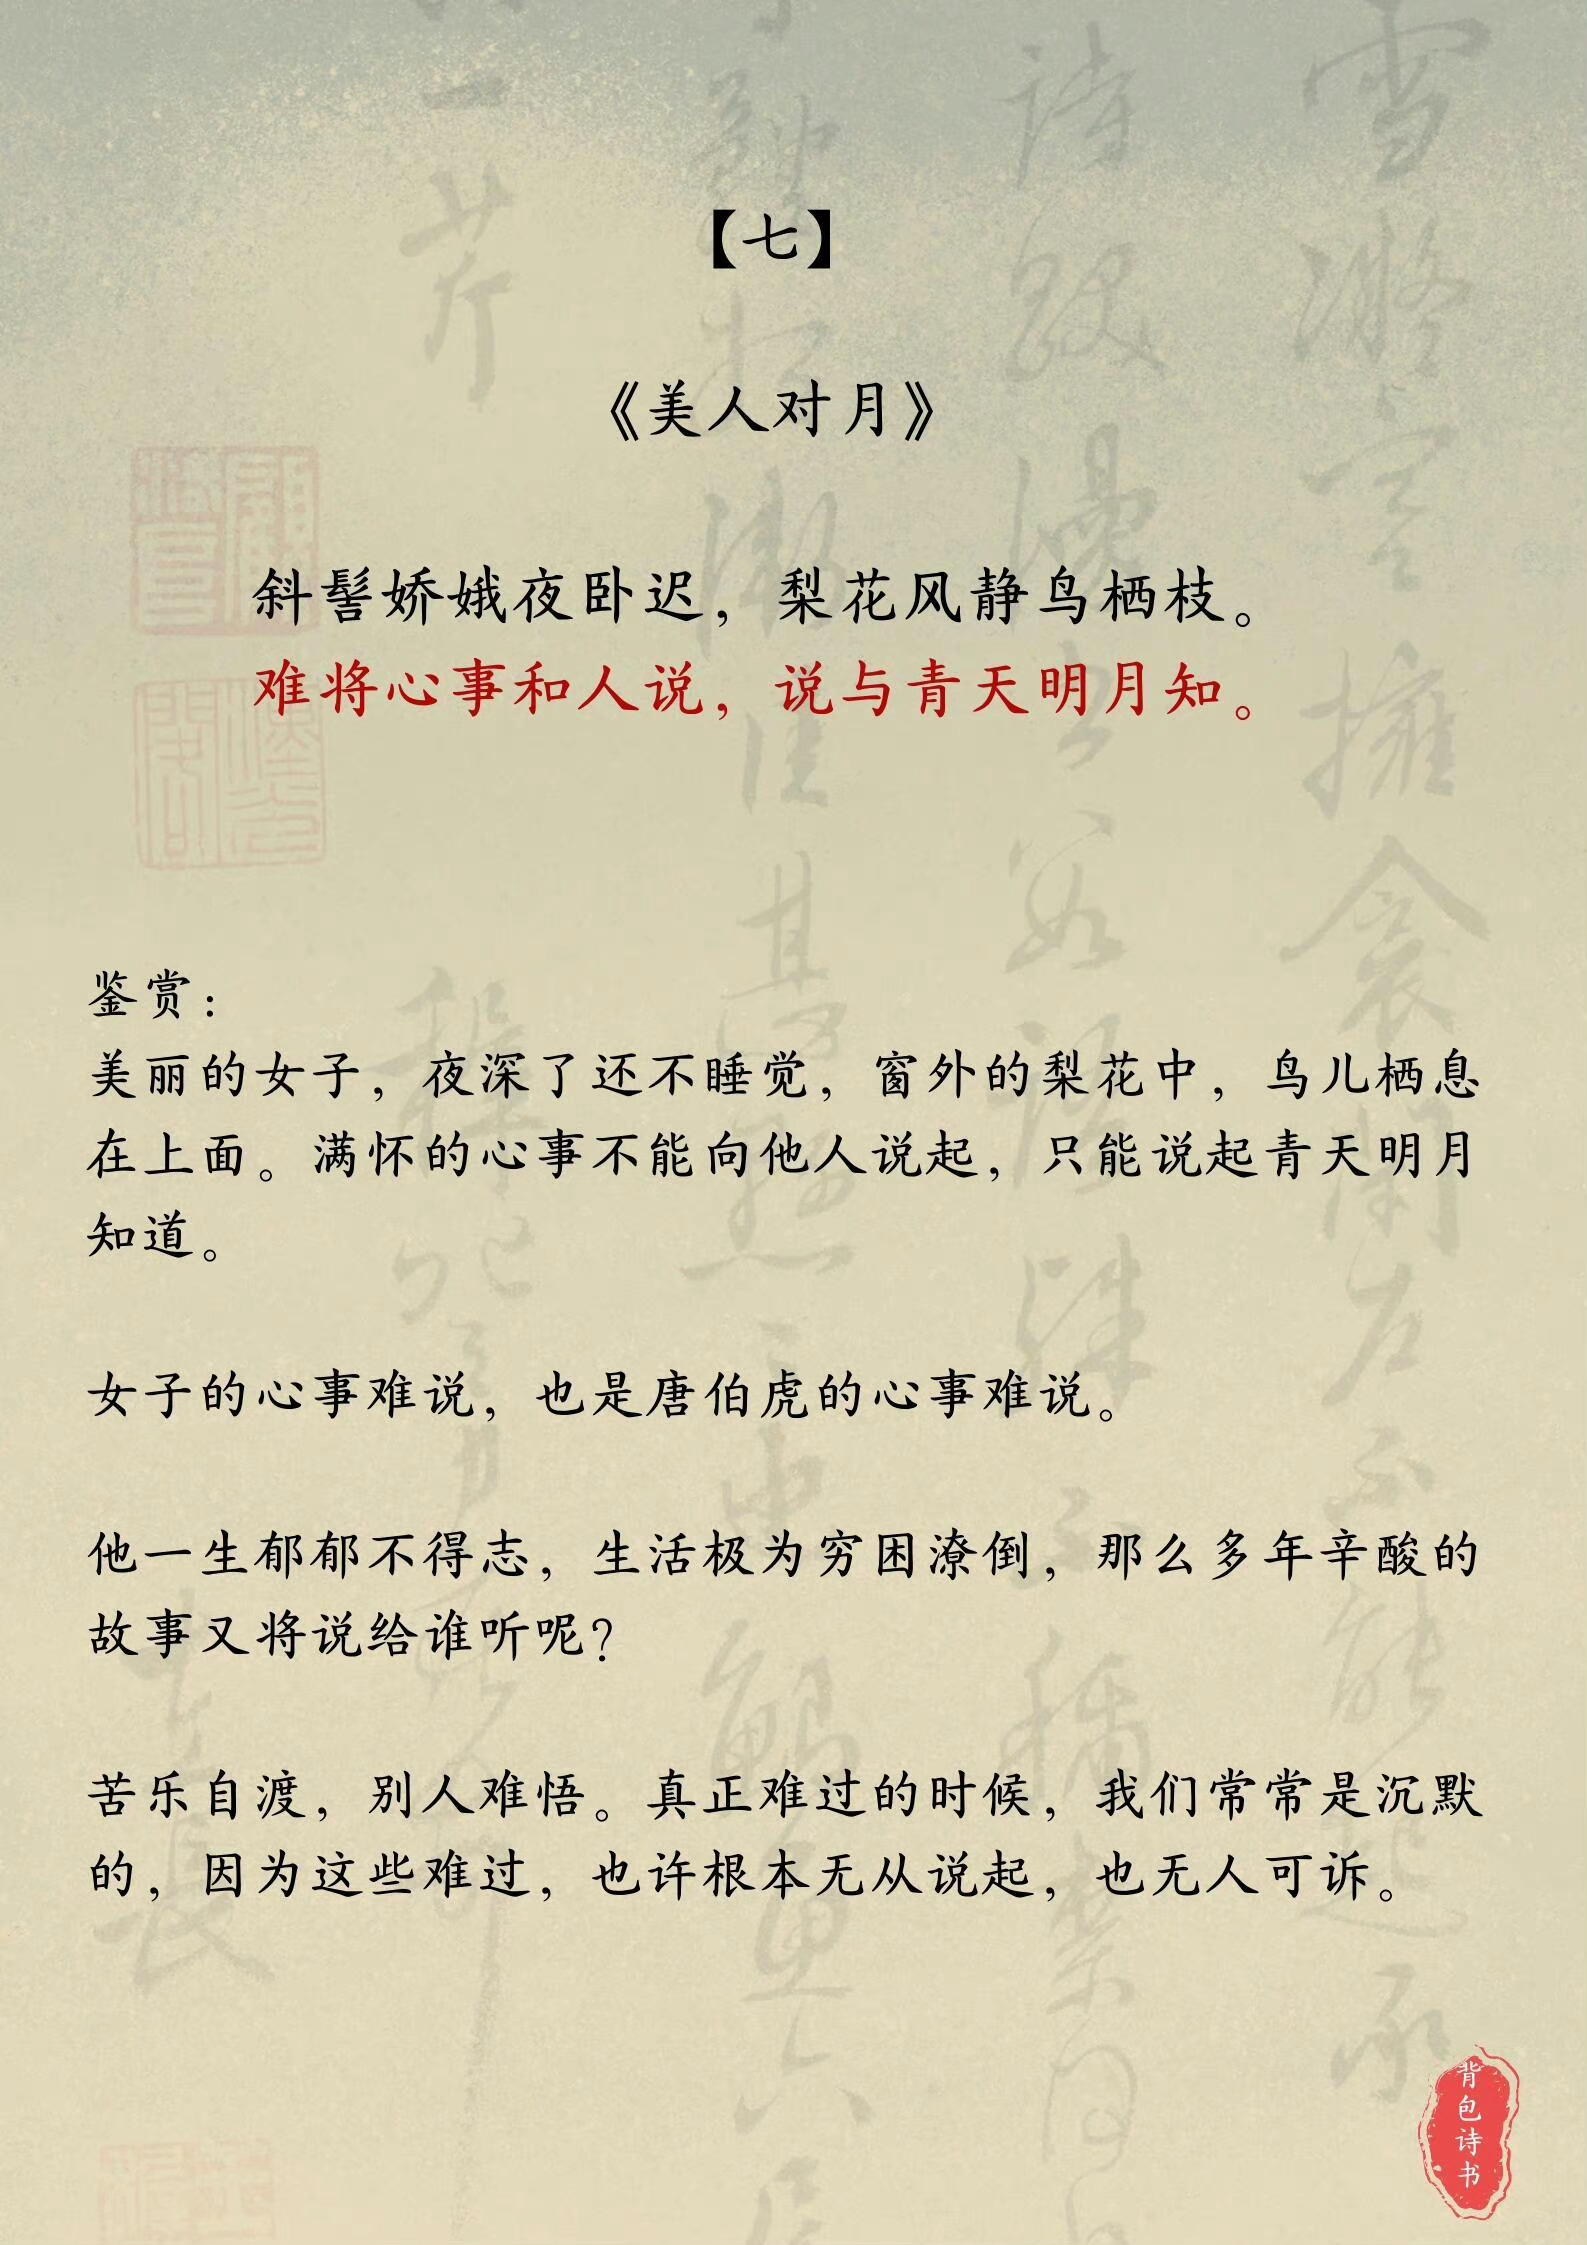 【七】
《美人对月》
斜髻娇娥夜卧迟，梨花风静鸟栖枝。
难将心事和人说，说与青天明月知。
鉴赏：
美丽的女子，夜深了还不睡觉，窗外的梨花中，鸟儿栖息
在上面。满怀的心事不能向他人说起，只能说起青天明月
知道。
女子的心事难说，也是唐伯虎的心事难说。
他一生郁郁不得志，生活极为穷困潦倒，那么多年辛酸的
故事又将说给谁听呢？
苦乐自渡，别人难悟。真正难过的时候，我们常常是沉默
的，因为这些难过，也许根本无从说起，也无人可诉。
背包诗书